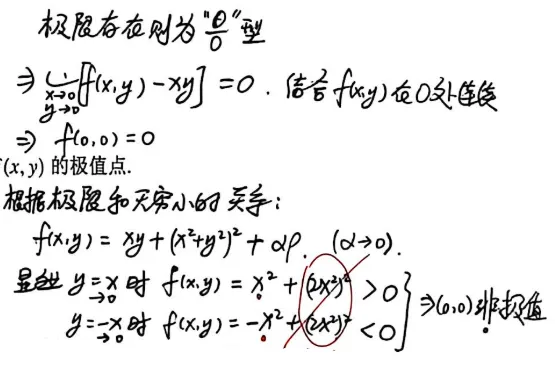 极限存在则为"0/0"型
⇒ lim x→0 y→0 [f(x,y) - xy] = 0 . 结合 f(x,y) 在0处连续
⇒ f(0,0) = 0
(x, y) 的极值点.
根据极限和无穷小的关系:
f(x,y) = xy + (x²+y²)² + αρ. (α→0).
显然 y=x→0 时 f(x,y) = x² + (2x²)² > 0
y=-x→0 时 f(x,y) = -x² + (2x²)² < 0 } ⇒ (0,0)非极值